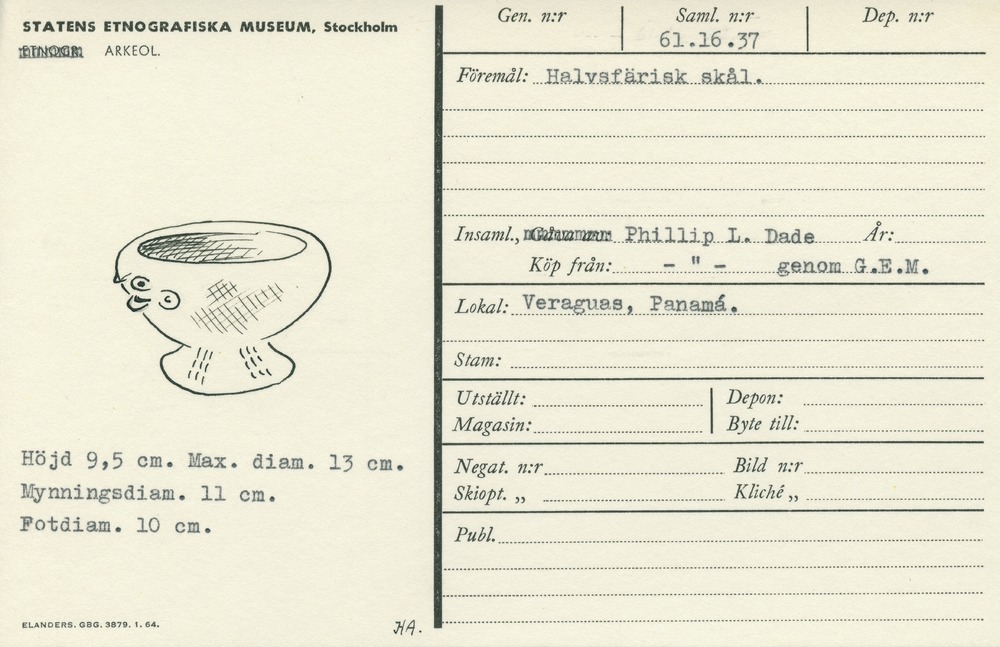 STATENS ETNOGRAFISKA MUSEUM, Stockholm
ETNOGR. ARKEOL.
Höjd 9,5 cm. Max. diam. 13 cm.
Mynningsdiam. 11 cm.
Fotdiam. 10 cm.
ELANDERS. GBG. 3879. 1. 64.
HA.
Gen. n:r Saml. n:r Dep. n:r
61.16.37
Föremål: Halvsfärisk skål.
Insaml., Gåva av: Phillip L. Dade År:
Köp från: - " - genom G.E.M.
Lokal: Veraguas, Panamá.
Stam:
Utställt: Depon:
Magasin: Byte till:
Negat. n:r Bild n:r
Skiopt. „ Kliché „
Publ.